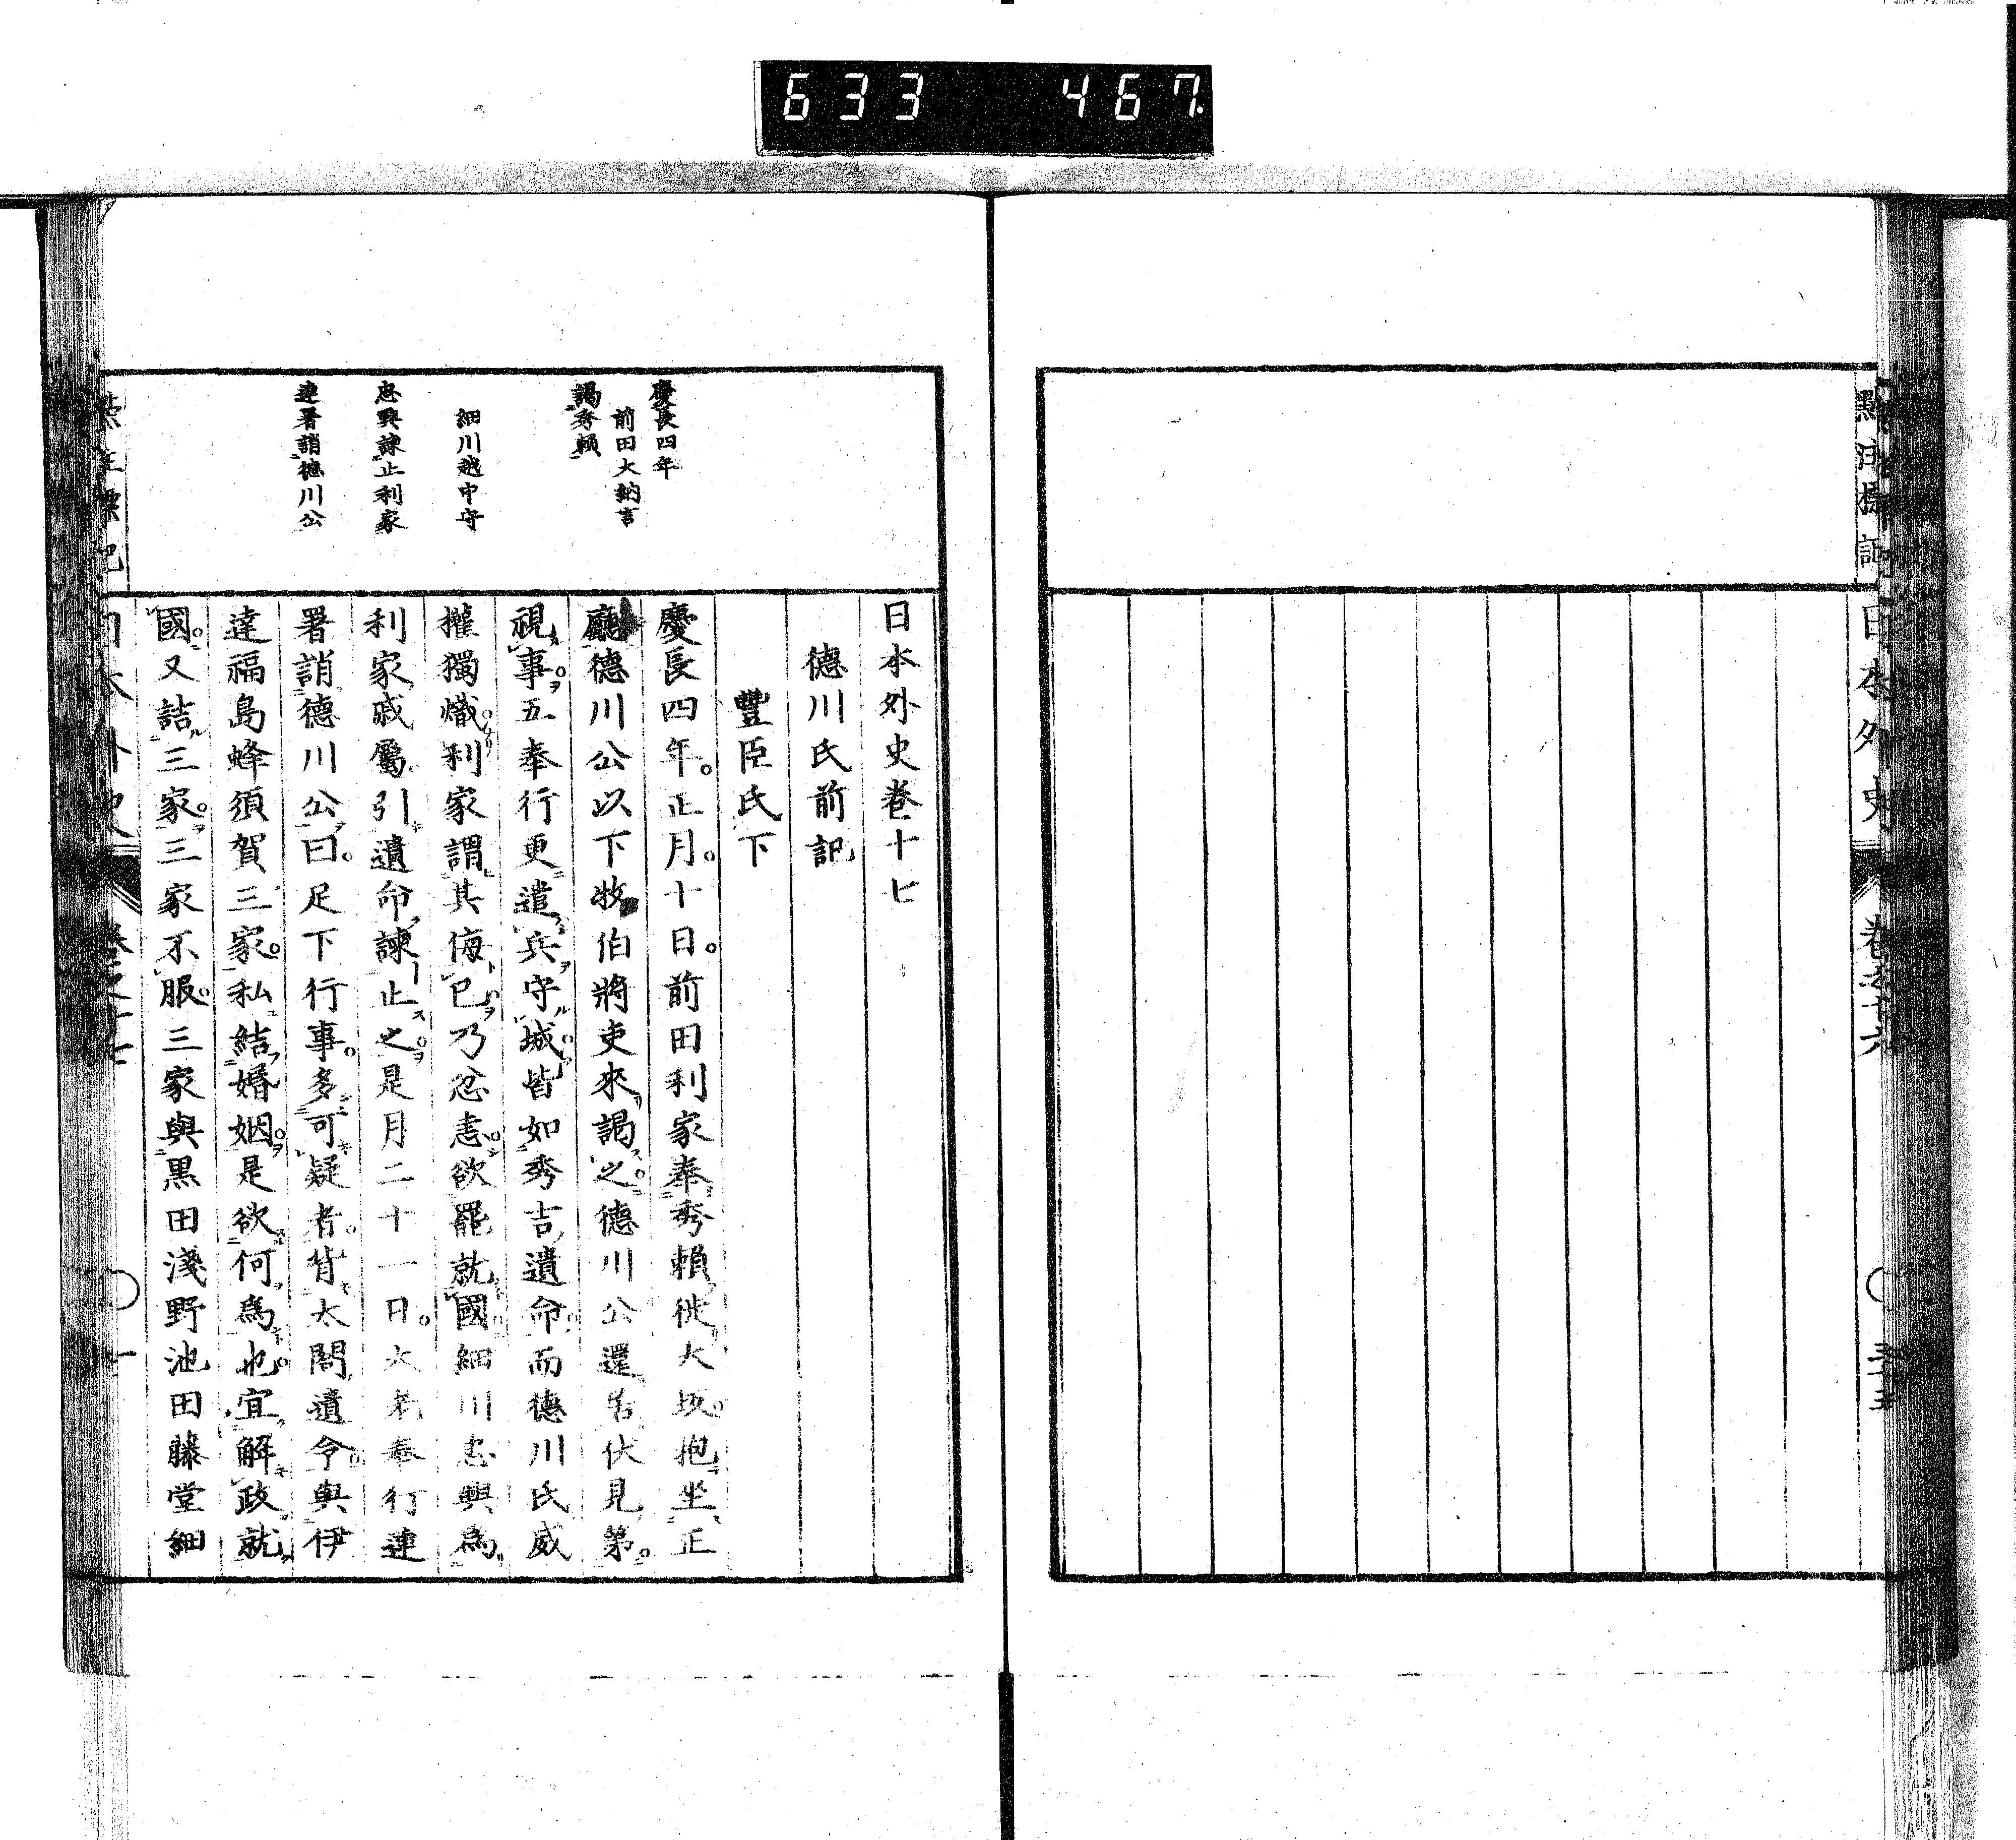 633 467
點注標記 日本外史 卷之十六
日本外史卷十七
德川氏前記
豐臣氏下
慶長四年
前田大納言
謁秀賴
細川越中守
忠興諫止利家
連署誚德川公
慶長四年。正月。十日。前田利家奉秀賴徙大坂。抱坐正
廳德川公以下牧伯將吏來謁之。德川公還伏見第。
視事。五奉行更遣兵守城。皆如秀吉遺命。而德川氏威
權獨熾。利家謂其侮已。乃忿恚。欲罷就國。細川忠興為
利家戚屬。引遺命諫止之。是月二十一日。大老奉行連
署誚德川公曰。足下行事。多可疑者。背太閤遺令。與伊
達福島蜂須賀三家。私結婚姻。是欲何為也。宜解政就
國。又詰三家。三家不服。三家與黑田淺野池田藤堂細
日本外史 卷之十七 一